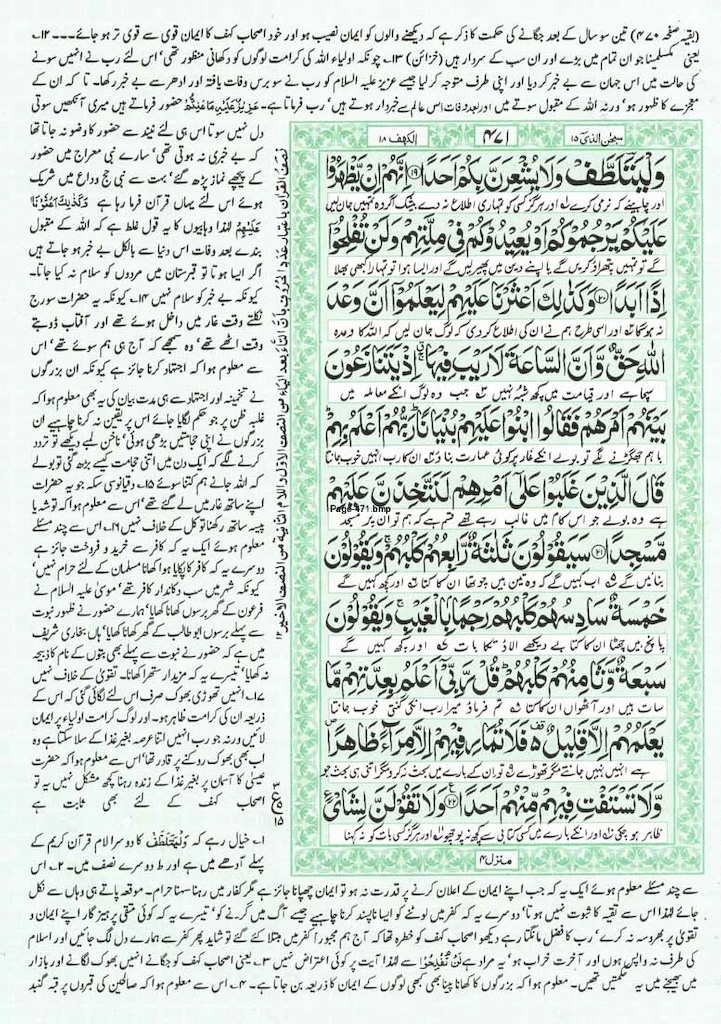 (بقیہ صفحہ ۴۷۰) تین سو سال کے بعد جگانے کی حکمت کا ذکر ہے کہ دیکھنے والوں کو ایمان نصیب ہو اور خود اصحاب کہف کا ایمان قوی سے قوی تر ہو جائے۔۔۔ ۱۲۔
یعنی مکسلمینا جو ان تمام میں بڑے اور ان سب کے سردار ہیں (خزائن) ۱۳۔ چونکہ اولیاء اللہ کی کرامت لوگوں کو دکھانی منظور تھی' اس لئے رب نے انہیں سونے
کی حالت میں اس جہان سے بے خبر کر دیا اور اپنی طرف متوجہ کر لیا جیسے عزیر علیہ السلام کو رب نے سو برس وفات یافتہ اور ادھر سے بے خبر رکھا۔ تا کہ ان کے
معجزے کا ظہور ہو' ورنہ اللہ کے مقبول سوتے میں اور بعد وفات اس عالم سے خبردار ہوتے ہیں' رب فرماتا ہے۔ عَزِيْزٌ عَلَيْهِ مَا عَنِتُّمْ حضور فرماتے ہیں میری آنکھیں سوتی
سبحٰن الذی ۱۵
۴۷۱
الکہف ۱۸
وَلْيَتَلَطَّفْ وَلَا يُشْعِرَنَّ بِكُمْ اَحَدًا ⑲ اِنَّهُمْ اِنْ يَّظْهَرُوْا
اور چاہیئے کہ نرمی کرے اور ہرگز کسی کو تمہاری اطلاع نہ دے بیشک اگر وہ تمہیں جان لیں
عَلَيْكُمْ يَرْجُمُوْكُمْ اَوْ يُعِيْدُوْكُمْ فِيْ مِلَّتِهِمْ وَلَنْ تُفْلِحُوْۤا
گے تو تمہیں پتھراؤ کریں گے یا اپنے دین میں پھیر لیں گے اور ایسا ہوا تو تمہارا کبھی بھلا
اِذًا اَبَدًا ⑳ وَكَذٰلِكَ اَعْثَرْنَا عَلَيْهِمْ لِيَعْلَمُوْۤا اَنَّ وَعْدَ
نہ ہوگا اور اسی طرح ہم نے ان کی اطلاع کر دی کہ لوگ جان لیں کہ اللہ کا وعدہ
اللّٰهِ حَقٌّ وَّاَنَّ السَّاعَةَ لَا رَيْبَ فِيْهَا اِذْ يَتَنَازَعُوْنَ
سچا ہے اور قیامت میں کچھ شبہ نہیں جب وہ لوگ انکے معاملہ میں
بَيْنَهُمْ اَمْرَهُمْ فَقَالُوا ابْنُوْا عَلَيْهِمْ بُنْيَانًا رَبُّهُمْ اَعْلَمُ بِهِمْ
باہم جھگڑنے لگے تو بولے انکے غار پر کوئی عمارت بناؤ ان کا رب انہیں خوب جانتا
قَالَ الَّذِيْنَ غَلَبُوْا عَلٰۤى اَمْرِهِمْ لَنَتَّخِذَنَّ عَلَيْهِمْ
Page-471.bmp
ہے وہ بولے جو اس کام میں غالب رہے تھے قسم ہے کہ ہم تو ان پر مسجد
مَّسْجِدًا ㉑ سَيَقُوْلُوْنَ ثَلٰثَةٌ رَّابِعُهُمْ كَلْبُهُمْ وَيَقُوْلُوْنَ
بنائیں گے اب کہیں گے کہ وہ تین ہیں چوتھا ان کا کتا اور کچھ کہیں گے
خَمْسَةٌ سَادِسُهُمْ كَلْبُهُمْ رَجْمًا بِالْغَيْبِ وَيَقُوْلُوْنَ
پانچ ہیں چھٹا ان کا کتا بے دیکھے الاؤ تکا بات اور کچھ کہیں گے
سَبْعَةٌ وَّثَامِنُهُمْ كَلْبُهُمْ قُلْ رَّبِّيْۤ اَعْلَمُ بِعِدَّتِهِمْ مَّا
سات ہیں اور آٹھواں ان کا کتا تم فرماؤ میرا رب انکی گنتی خوب جانتا
يَعْلَمُهُمْ اِلَّا قَلِيْلٌ فَلَا تُمَارِ فِيْهِمْ اِلَّا مِرَآءً ظَاهِرًا
ہے انہیں نہیں جانتے مگر تھوڑے تو ان کے بارے میں بحث نہ کرو مگر اتنی ہی بحث جو
وَّلَا تَسْتَفْتِ فِيْهِمْ مِّنْهُمْ اَحَدًا ㉒ وَلَا تَقُوْلَنَّ لِشَايْءٍ
ظاہر ہو چکی اور انکے بارے میں کسی کتابی سے کچھ نہ پوچھو اور ہرگز کسی بات کو نہ کہنا
منزل ۴
دل نہیں سوتا اس ہی لئے نیند سے حضور کا وضو نہ جاتا تھا
کہ بے خبری نہ ہوتی تھی' سارے نبی معراج میں حضور
کے پیچھے نماز پڑھ گئے' بہت سے نبی حج وداع میں شریک
ہوئے اس لئے یہاں قرآن فرما رہا ہے وَكَذٰلِكَ اَعْثَرْنَا
عَلَيْهِمْ لہذا وہابیوں کا یہ قول غلط ہے کہ اللہ کے مقبول
بندے بعد وفات اس دنیا سے بالکل بے خبر ہو جاتے ہیں
اگر ایسا ہوتا تو قبرستان میں مردوں کو سلام نہ کیا جاتا۔
کیونکہ بے خبر کو سلام نہیں ۱۴۔ کیونکہ یہ حضرات سورج
نکلتے وقت غار میں داخل ہوئے تھے اور آفتاب ڈوبتے
وقت اٹھے تھے' وہ سمجھے کہ آج ہی ہم سوئے تھے' اس
سے معلوم ہوا کہ اجتہاد کرنا جائز ہے کیونکہ ان بزرگوں
نے تخمینہ اور اجتہاد سے ہی مدت بیان کی یہ بھی معلوم ہوا کہ
غلبہ ظن پر جو حکم لگایا جائے اس پر یقین نہ کرنا چاہیے ان
بزرگوں نے اپنی حجامتیں بڑھی ہوئی' ناخن لمبے دیکھے تو تردد
کرنے لگے کہ ایک دن میں اتنی حجامت کیسے بڑھ گئی تو بولے
کہ اللہ جانے ہم کتنا سوئے ۱۵۔ دقیانوسی سکہ جو یہ حضرات
اپنے ساتھ غار میں لے گئے تھے' اس سے معلوم ہوا کہ توشہ یا
پیسہ ساتھ رکھنا توکل کے خلاف نہیں ۱۶۔ اس سے چند مسئلے
معلوم ہوئے ایک یہ کہ کافر سے خرید و فروخت جائز ہے
دوسرے یہ کہ کافر کا پکایا ہوا کھانا مسلمان کے لئے حرام نہیں'
کیونکہ شہر میں سب دکاندار کافر تھے' موسیٰ علیہ السلام نے
فرعون کے گھر برسوں کھانا کھایا' ہمارے حضور نے ظہور نبوت
سے پہلے برسوں ابو طالب کے گھر کھانا کھایا' ہاں بخاری شریف
میں ہے کہ حضور نے نبوت سے پہلے بھی بتوں کے نام کا ذبیحہ
نہ کھایا' تیسرے یہ کہ مزیدار ستھرا کھانا۔ تقویٰ کے خلاف نہیں
۱۷۔ انہیں تھوڑی بھوک صرف اس لئے لگائی گئی کہ اس کے
ذریعہ ان کی کرامت ظاہر ہو۔ اور لوگ کرامت اولیاء پر ایمان
لائیں ورنہ جو رب انہیں اتنا عرصہ بغیر غذا کے سلا سکتا ہے وہ
اب بھی بھوک روکنے پر قادر تھا' اس سے معلوم ہوا کہ حضرت
عیسیٰ کا آسمان پر بغیر غذا کے زندہ رہنا کچھ مشکل نہیں یہ تو
اصحاب کہف کے لئے بھی ثابت ہے
۱۔ خیال رہے کہ وَلْيَتَلَطَّفْ کا دوسرا لام قرآن کریم کے
پہلے آدھے میں ہے اور ط دوسرے نصف میں۔ ۲۔ اس
سے چند مسئلے معلوم ہوئے ایک یہ کہ جب اپنے ایمان کے اعلان کرنے پر قدرت نہ ہو تو ایمان چھپانا جائز ہے مگر کفار میں رہنا سہنا حرام۔ موقعہ پاتے ہی وہاں سے نکل
جائے لہذا اس سے تقیہ کا ثبوت نہیں ہوتا' دوسرے یہ کہ کفر میں لوٹنے کو ایسا ناپسند کرنا چاہیے جیسے آگ میں گرنے کو' تیسرے یہ کہ کوئی متقی پرہیزگار اپنے ایمان و
تقویٰ پر بھروسہ نہ کرے' رب کا فضل مانگتا رہے دیکھو اصحاب کہف کو خطرہ تھا کہ آج ہم مجبوراً کفر میں مبتلا کئے گئے تو شاید پھر کفر سے ہمارے دل لگ جائیں اور اسلام
کی طرف نہ واپس ہوں اور آخرت خراب ہو' یہ مراد ہے لَنْ تُفْلِحُوْا سے لہذا آیت پر کوئی اعتراض نہیں ۳۔ یعنی اصحاب کہف کو جگانے انہیں بھوک لگانے اور بازار
میں بھیجنے میں یہ حکمتیں تھیں۔ معلوم ہوا کہ بزرگوں کا کھانا پینا بھی کبھی لوگوں کے ایمان کا ذریعہ بن جاتا ہے۔ ۴۔ اس سے معلوم ہوا کہ صالحین کی قبروں پر قبہ گنبد